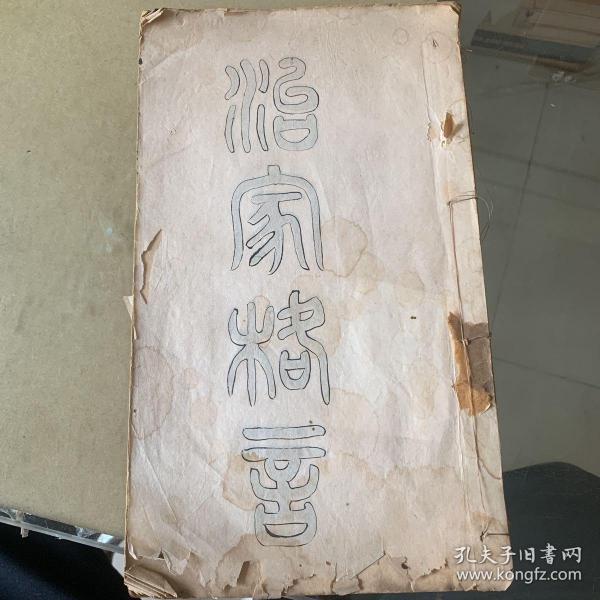 治家格言
孔夫子旧书网
www.kongfz.com